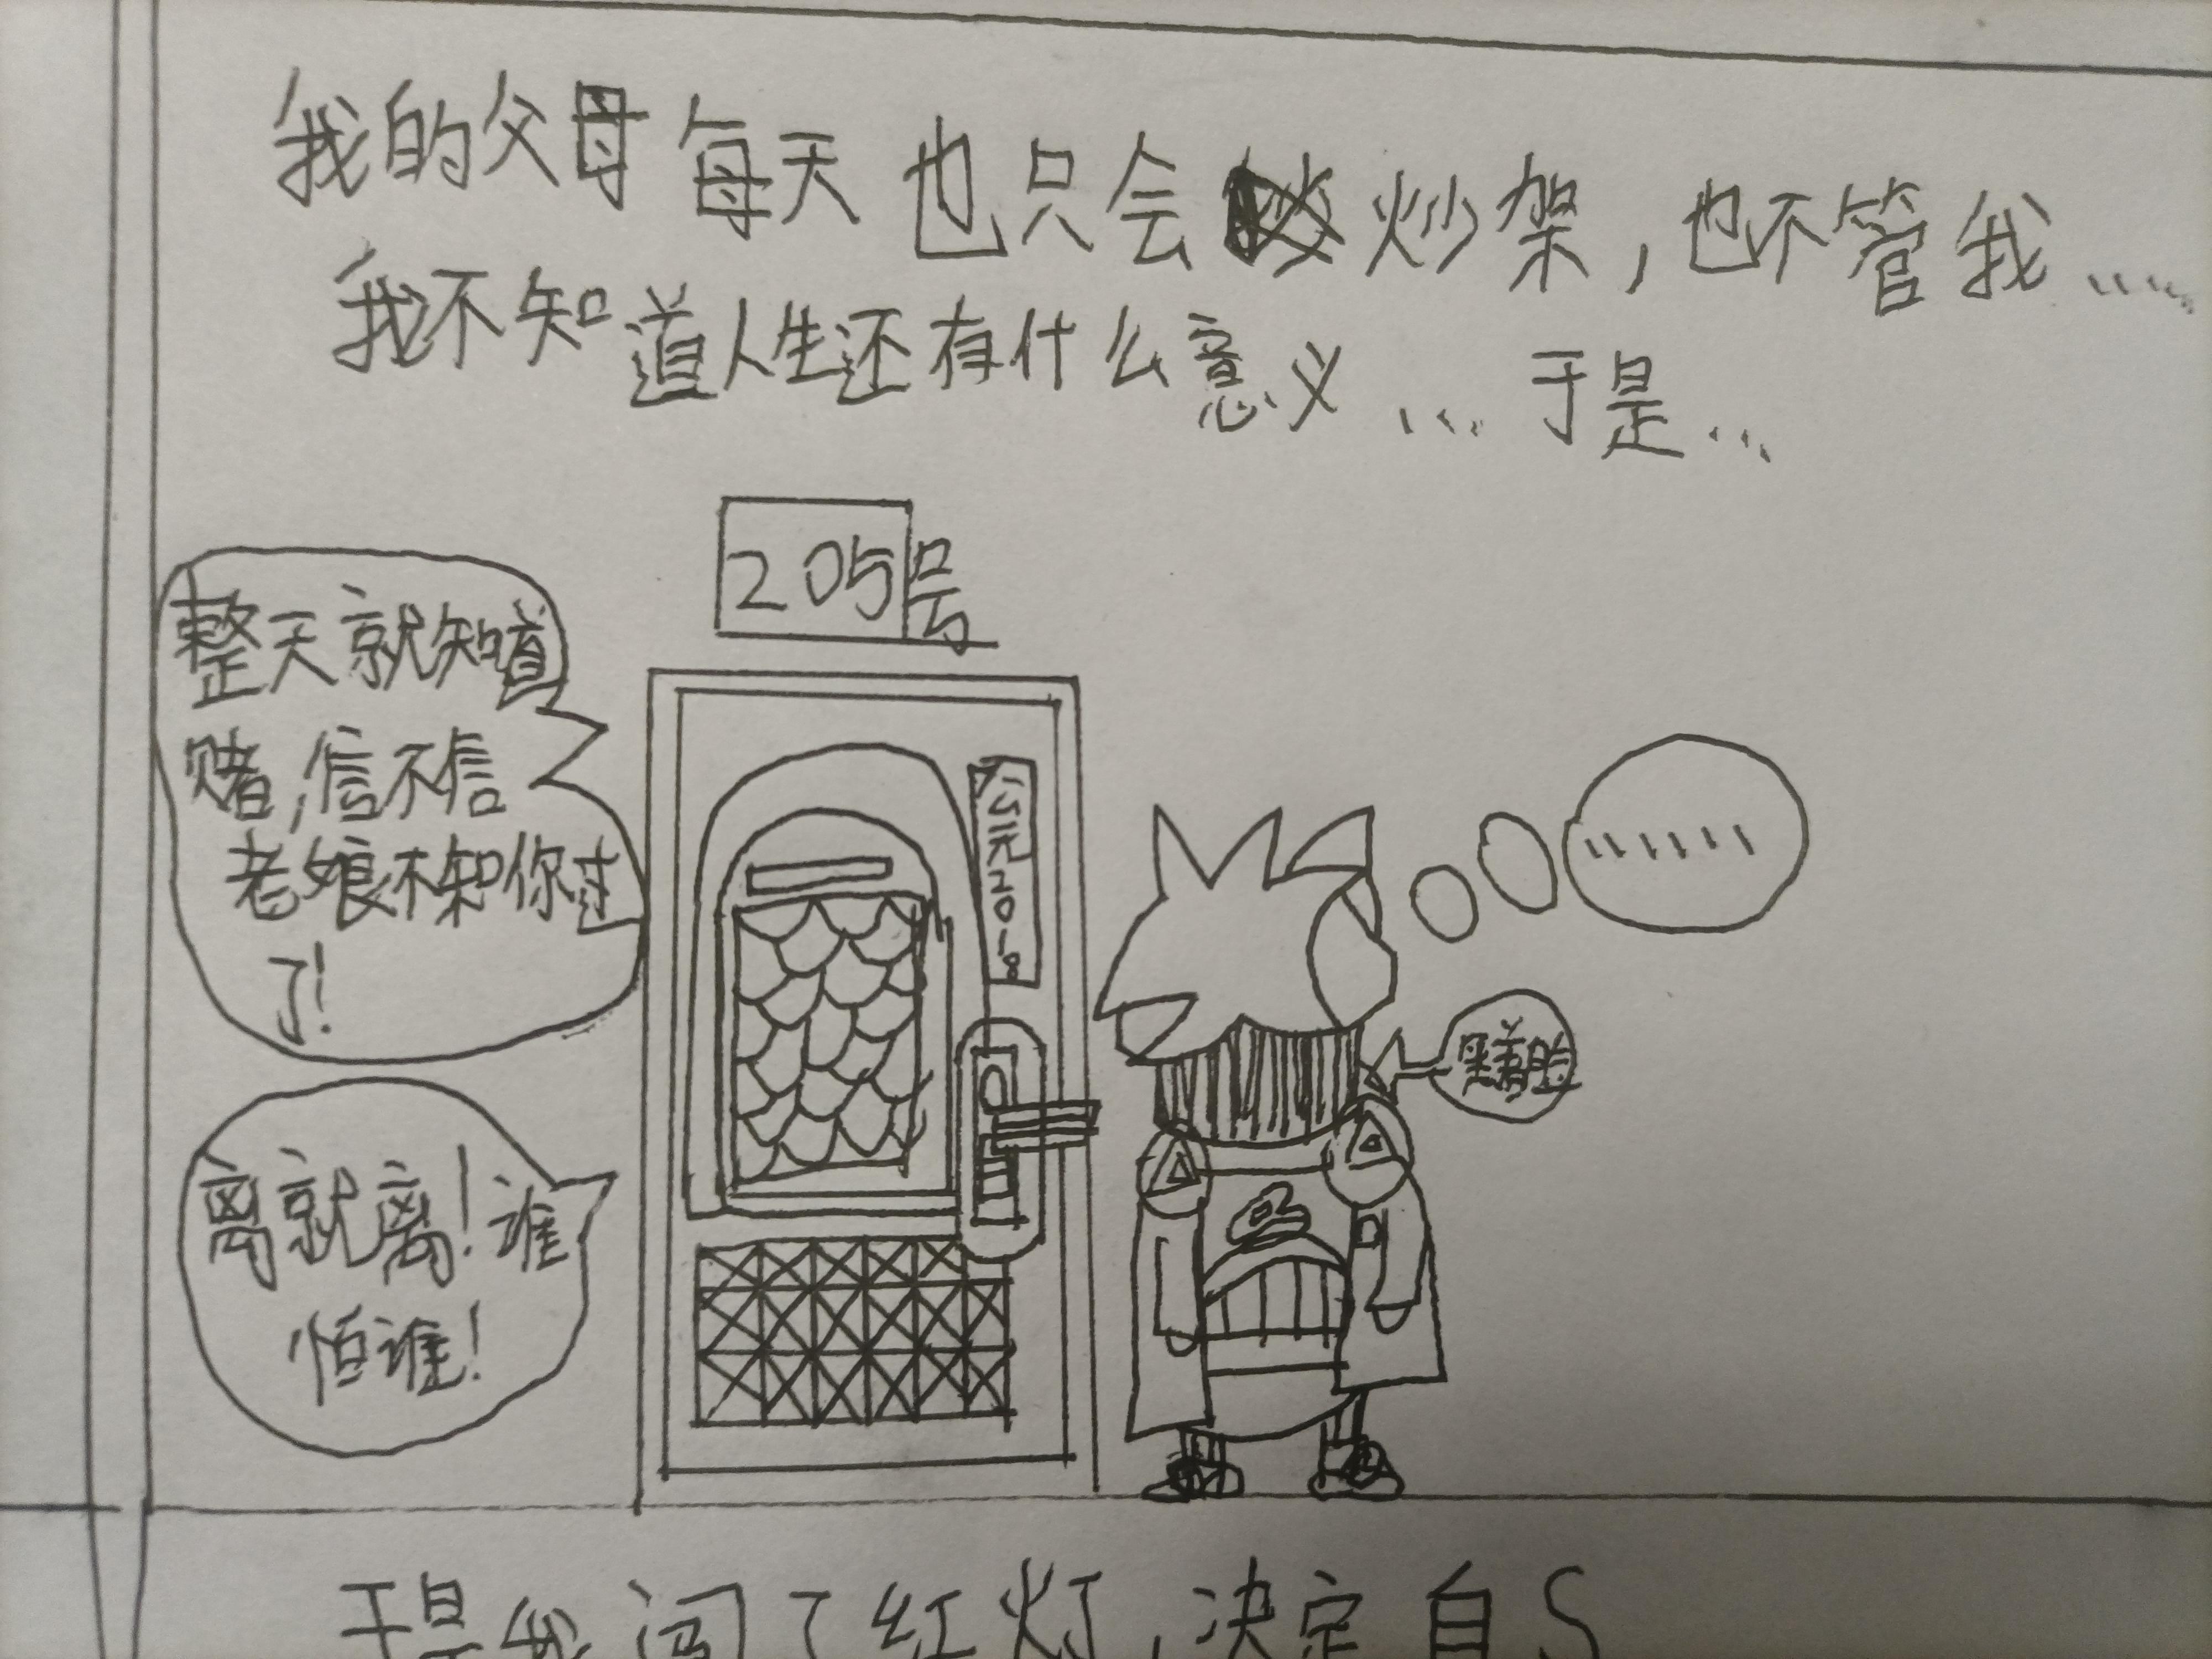 我的父母每天也只会炒架，也不管我……
我不知道人生还有什么意义……于是…
205号
整天就知道
赌，信不信
老娘不和你过
了！
离就离！谁
怕谁！
……
黑着脸
于是我闯了红灯，决定自S